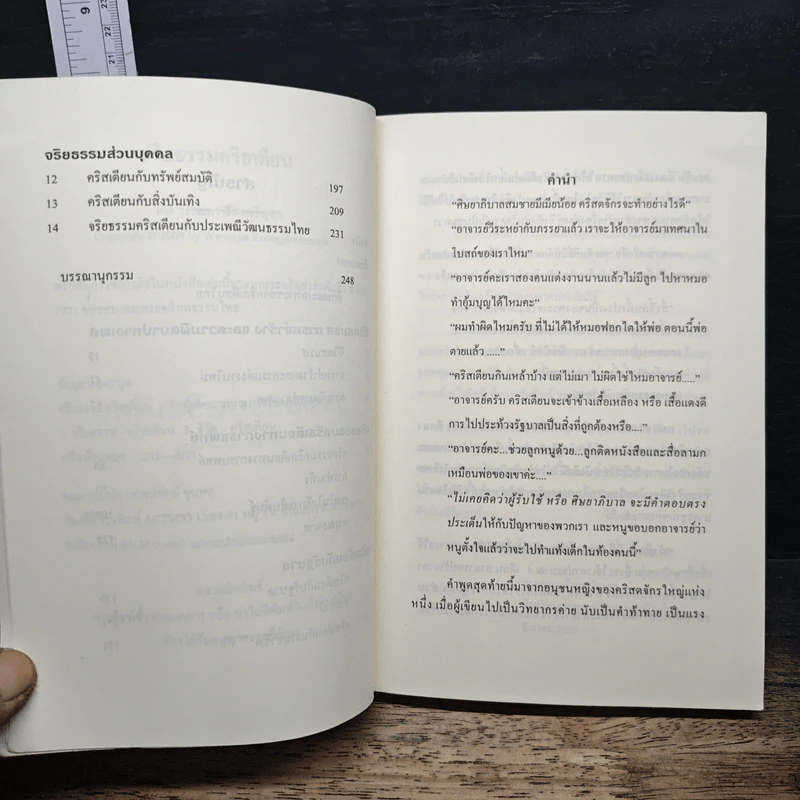 จริยธรรมส่วนบุคคล
12 คริสเตียนกับทรัพย์สมบัติ 197
13 คริสเตียนกับสิ่งบันเทิง 209
14 จริยธรรมคริสเตียนกับประเพณีวัฒนธรรมไทย 231
บรรณานุกรรม 248
คำนำ
“ศิษยาภิบาลสมชายมีเมียน้อย คริสตจักรจะทำอย่างไรดี”
“อาจารย์วีระหย่ากับภรรยาแล้ว เราจะให้อาจารย์มาเทศนาใน
โบสถ์ของเราไหม”
“อาจารย์คะเราสองคนแต่งงานนานแล้วไม่มีลูก ไปหาหมอ
ทำอุ้มบุญได้ไหมคะ”
“ผมทำผิดไหมครับ ที่ไม่ได้ให้หมอฟอกไตให้พ่อ ตอนนี้พ่อ
ตายแล้ว .....”
“คริสเตียนกินเหล้าบ้าง แต่ไม่เมา ไม่ผิดใช่ไหมอาจารย์.....”
“อาจารย์ครับ คริสเตียนจะเข้าข้างเสื้อเหลือง หรือ เสื้อแดงดี
การไปประท้วงรัฐบาลเป็นสิ่งที่ถูกต้องหรือ....”
“อาจารย์คะ...ช่วยลูกหนูด้วย...ลูกติดหนังสือและสื่อลามก
เหมือนพ่อของเขาค่ะ....”
“ไม่เคยคิดว่าผู้รับใช้ หรือ ศิษยาภิบาล จะมีคำตอบตรง
ประเด็นให้กับปัญหาของพวกเรา และหนูขอบอกอาจารย์ว่า
หนูตั้งใจแล้วว่าจะไปทำแท้งเด็กในท้องคนนี้”
คำพูดสุดท้ายนี้มาจากอนุชนหญิงของคริสตจักรใหญ่แห่ง
หนึ่ง เมื่อผู้เขียนไปเป็นวิทยากรค่าย นับเป็นคำท้าทาย เป็นแรง
9
23
22
21